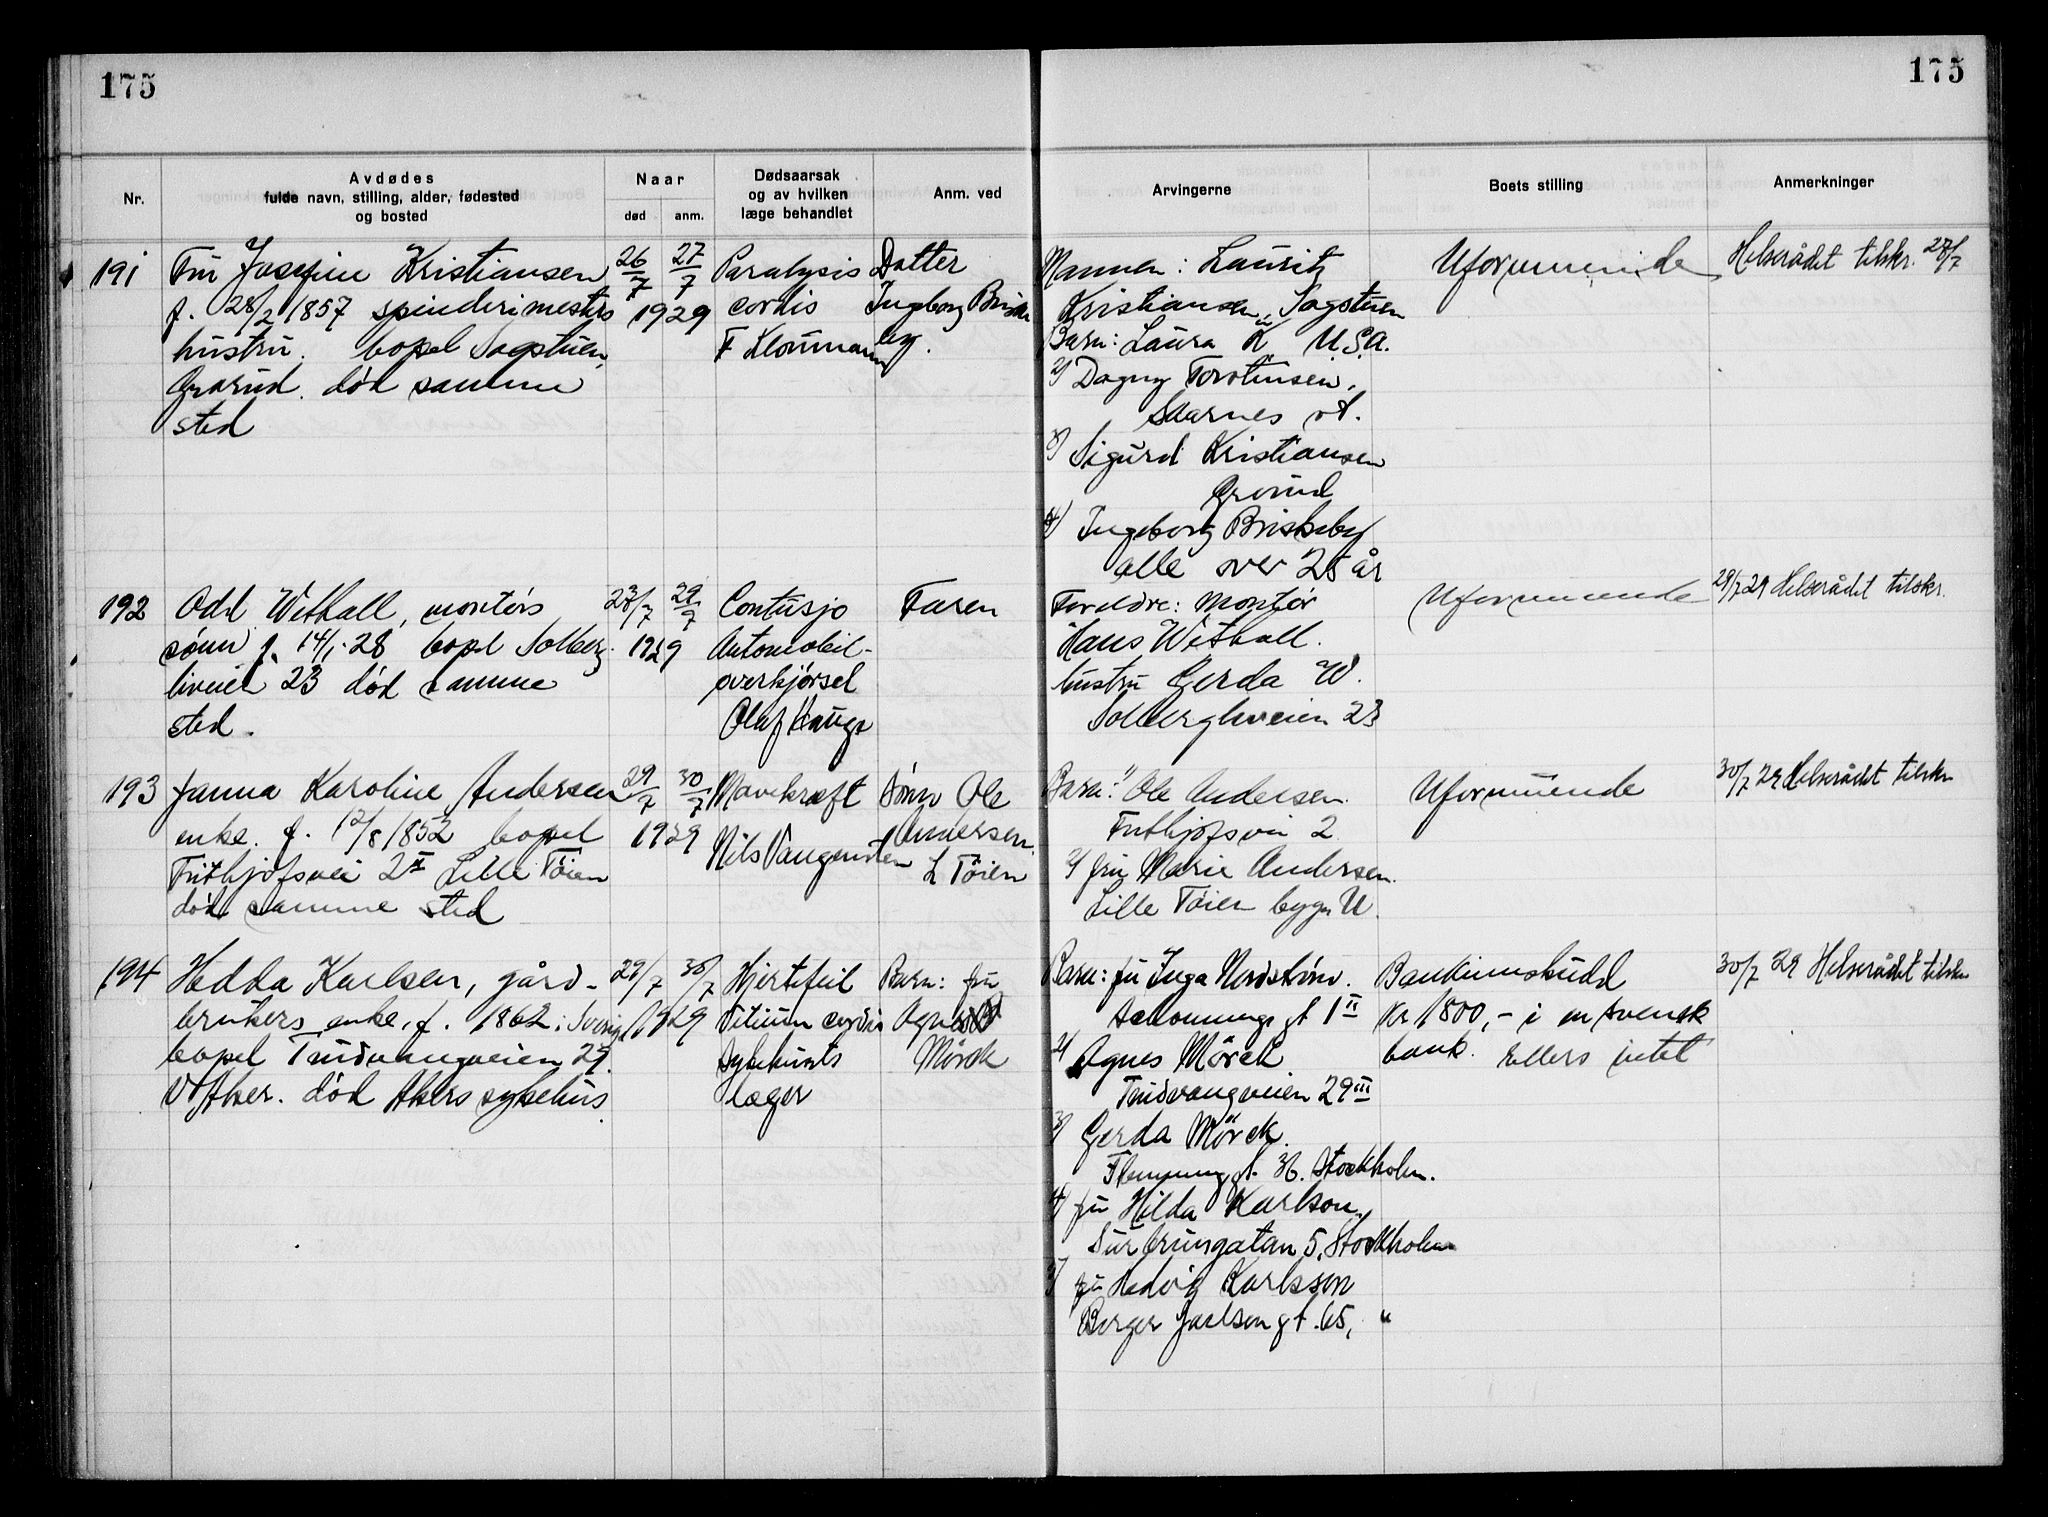 175
175
Nr.
Avdødes
fulde navn, stilling, alder, fødested
og bosted
Naar
død
anm.
Dødsaarsak
og av hvilken
læge behandlet
Anm. ved
Arvingerne
Boets stilling
Anmerkninger
191
Fru Josefine Kristiansen
f. 28/2 1857 spinderimesters
hustru. bopel Sagstuen,
Grorud. død samme
sted
26/7 27/7
1929
Paralysis
cordis
F Kloumann
Datter
Ingeborg Briske
by.
Mannen: Lauritz
Kristiansen, Sagstuen
Barn: Laura K U.S.A.
2) Dagny Torstensen,
Skarnes st.
3) Sigurd Kristiansen
Grorud
4) Ingeborg Briskeby
alle over 25 år
Uformuende
Helserådet tilskr. 27/7
192
Odd Wethall, montørs
sønn f. 14/1-28 bopel Solberg-
liveien 23 død samme
sted.
23/7 29/7
1929
Contusjo
Automobil-
overkjørsel
Olaf Hauge
Faren
Foreldre: Montør
Hans Wethall.
hustru Gerda W.
Solbergliveien 23
Uformuende
29/7 29 Helserådet tilskr.
193
Janna Karoline Andersen
enke. f. 12/8 1852 bopel
Frithjofsvei 2 II Lille Tøien
død samme sted
29/7 30/7
1929
Mavekræft
Nils Vangensten
Sønn Ole
Andersen.
L Tøien
Barn: 1) Ole Andersen.
Frithjofsvei 2
2) fru Marie Andersen.
Lille Tøien bygn U.
Uformuende
30/7 29 Helserådet tilskr
194
Hedda Karlsen, gård-
brukers enke, f. 1862 i Sverige
bopel Trudvangveien 29.
V Aker. død Akers sykehus.
29/7 30/7
1929
Hjertefeil
Vitium cordis
sykehusets
læger
Barn: fru
Agnes
Mörck
Barn: fru Inga Nordstrøm.
gt 1 II
2) Agnes Mörck
Trudvangveien 29 III
3) Gerda Mörck.
Flemminggt. 36. Stockholm.
4) fru Hilda Karlson,
Surbrunsgatan 5, Stockholm
5) fru Hedvig Karlsson
Berger Jarlsengt. 65, "
Bankinnskudd
Kr 1800,- i en svensk
bank. Ellers intet
30/7 29 Helserådet tilskr